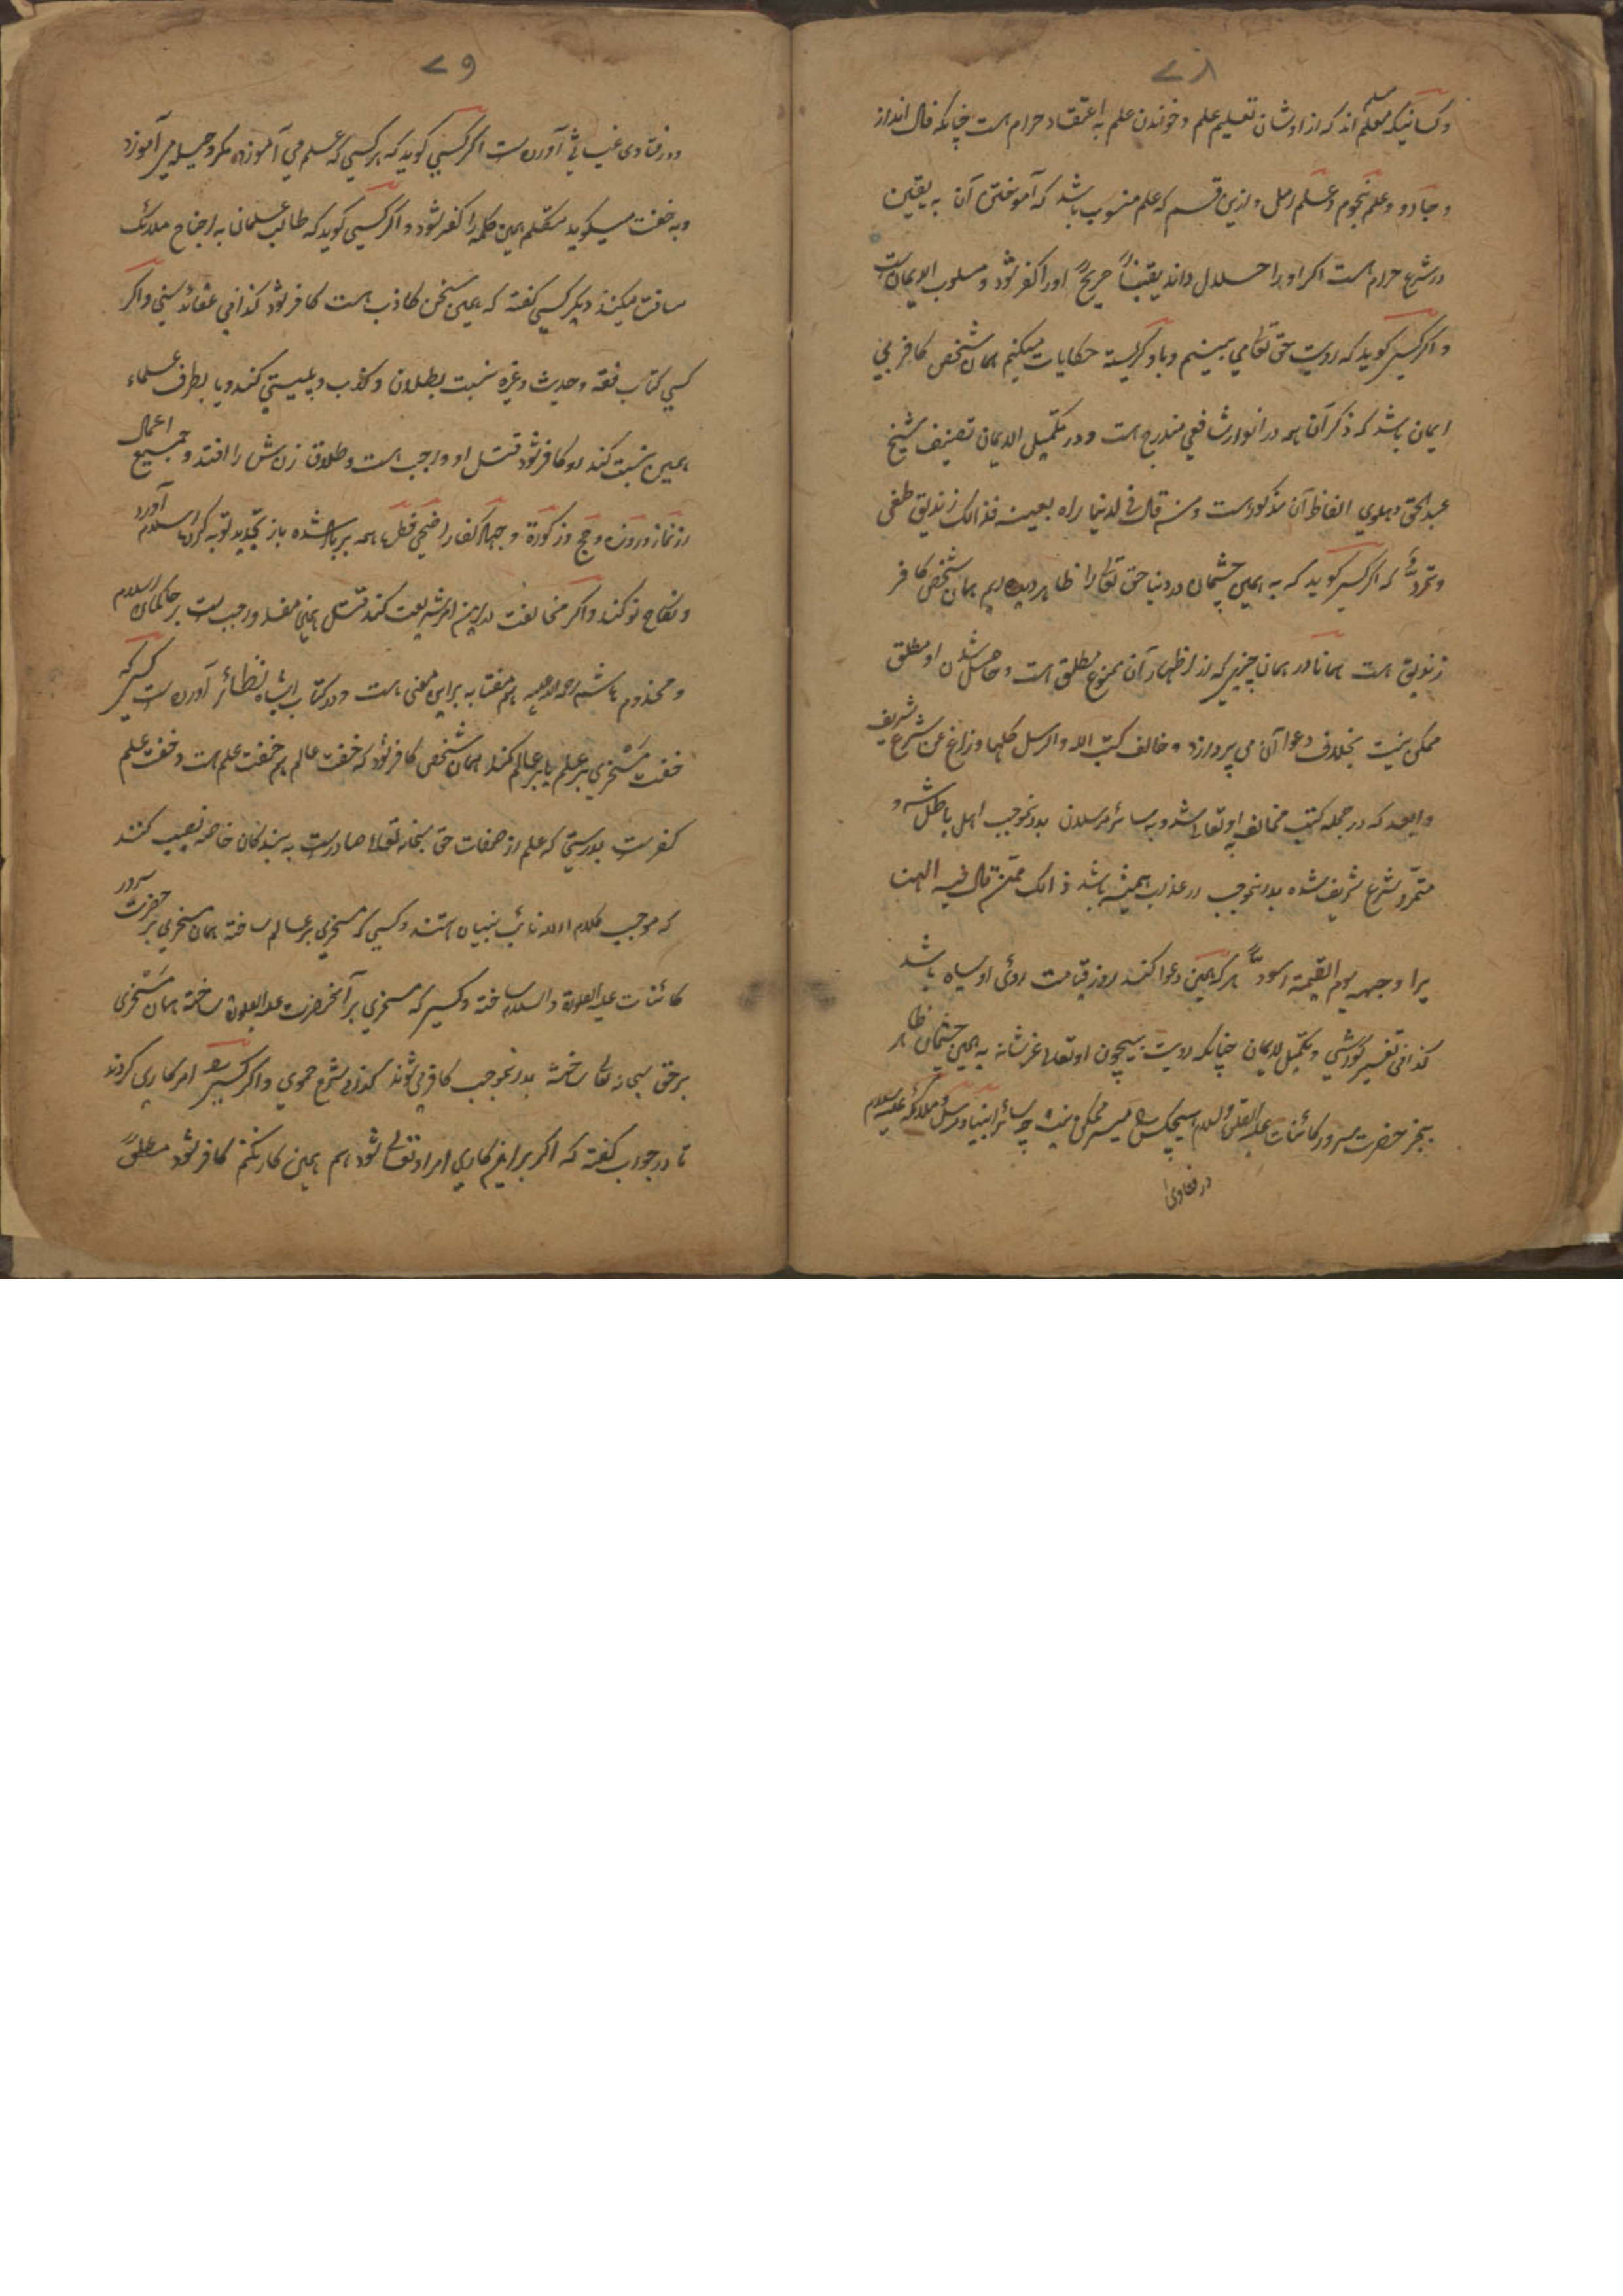 ۷۸
و کسانیکه معلم اند که از اوشان تعلیم علم و خوندن علم به اعتقاد حرام است چنانکه فال انداز
و جادو و علم نجوم و علم رمل و ازین قسم که علم منسوب باشد که آموختن آن به یقین
در شرع حرام است اگر او را حلال داند یقیناً صریحً او را کفر شود و مسلوب الایمان است
و اگر کسی گوید که رویت حق تعالی می بینم و با و نگریسته حکایات میکنیم همان شخص کافر بی
ایمان باشد که ذکر آن هم در انوار شافعی مندرج است و در تکمیل الایمان تصنیف شیخ
عبدالحق دهلوی الفاظ آن مذکور است و من قال فی الدنیا راه بعینه فذالک زندیق طغی
و تمردّ که اگر کسی گوید که به همین چشمان در دنیا حق تعالی را ظاهر دیده ایم همان شخص کافر
زندیق است همانا در همان چیزی که از اظهار آن ممنوع مطلق است و حاصل شدن او مطلق
ممکن نیست بخلاف دعوا آن می پردازد و خالف کتب الله والرسل کلها و زاغ عن شرع شریف
وابعد که در جمله کتب مخالف او تعالی شد و به سائر مرسلان بدرنموجب اهل باطل شد و
متمرّد شرع شریف شده بدرنموجب در عذاب همیشه باشد ذالک ممّن قال فیه الهنا
یرا وجهه یوم القیمة اسودّ هر که همین دعوا کند روز قیامت روئ او سیاه باشد
کذا فی تفسیر کورشی و تکمیل الایمان چنانکه رویت بیچون او تعالی عز شانه به همین چشمان ظاهر
بجز حضرت سرور کائنات علیه الصلوة والسلام هیچکس را میسر ممکن نیست چه سائر انبیا و رسل و ملائکه علیه السلام
در فتاوی
۷۹
و در فتاوی غیاثی آورده است اگر کسی گوید که هر کسی که علم می آموزد مکر و حیله می آموزد
و به خفت میگوید متکلم همین کلمه را کفر شود و اگر کسی گوید که طالب علمان به اجناح ملائک
مسافت میکنند دیگر کسی گفته که همین سخن کاذب است کافر شود کذا فی عقائد سنی و اگر
کسی کتاب فقه و حدیث و غیره نسبت بطلان و کذب و پلیستی کند و یا بطرف علماء
همین نسبت کند او کافر شود قتل او واجب است و طلاق زنش را افتد و جمیع اعمال
از نماز و روزه و حج و زکوة و جهاد کفار اضحی فطر ها همه برباد شده باز تجدید توبه کرده اسلام آورد
و نکاح نو کند و اگر مخالفت در این امر شریعت کند قتل همین مفسد واجب است بر حاکمان اسلام
و مخدوم هاشم رحمه الله علیه هم مفتا به بر این معنی است و در کتاب اشباه نظائر آورده است کسی که
خفت مَسْخری بر علم یا بر عالم کند همان شخص کافر شود که خفت عالم هم خفت علم است و خفت علم
کفر است بدرستی که علم از صفات حق سبحانه تعالی صادر است به بندگان خاصه نصیب کنند
که موجب کلام الله نائب نبیان استند و کسی که مسخری بر عالم ساخته همان مسخری بر حضرت سرور
کائنات علیه الصلوة والسلام ساخته و کسی که مسخری بر آنحضرت علیه الصلوة ساخته همان مَسْخری
بر حق سبحانه تعالی ساخته بدرنموجب کافر می شوند کذا فی شرع حموی و اگر کسی را امر کاری کردند
تا در جواب گفته که اگر بر این کاری امر او تعالی شود هم همین کار نکنم کافر شود مطلقً